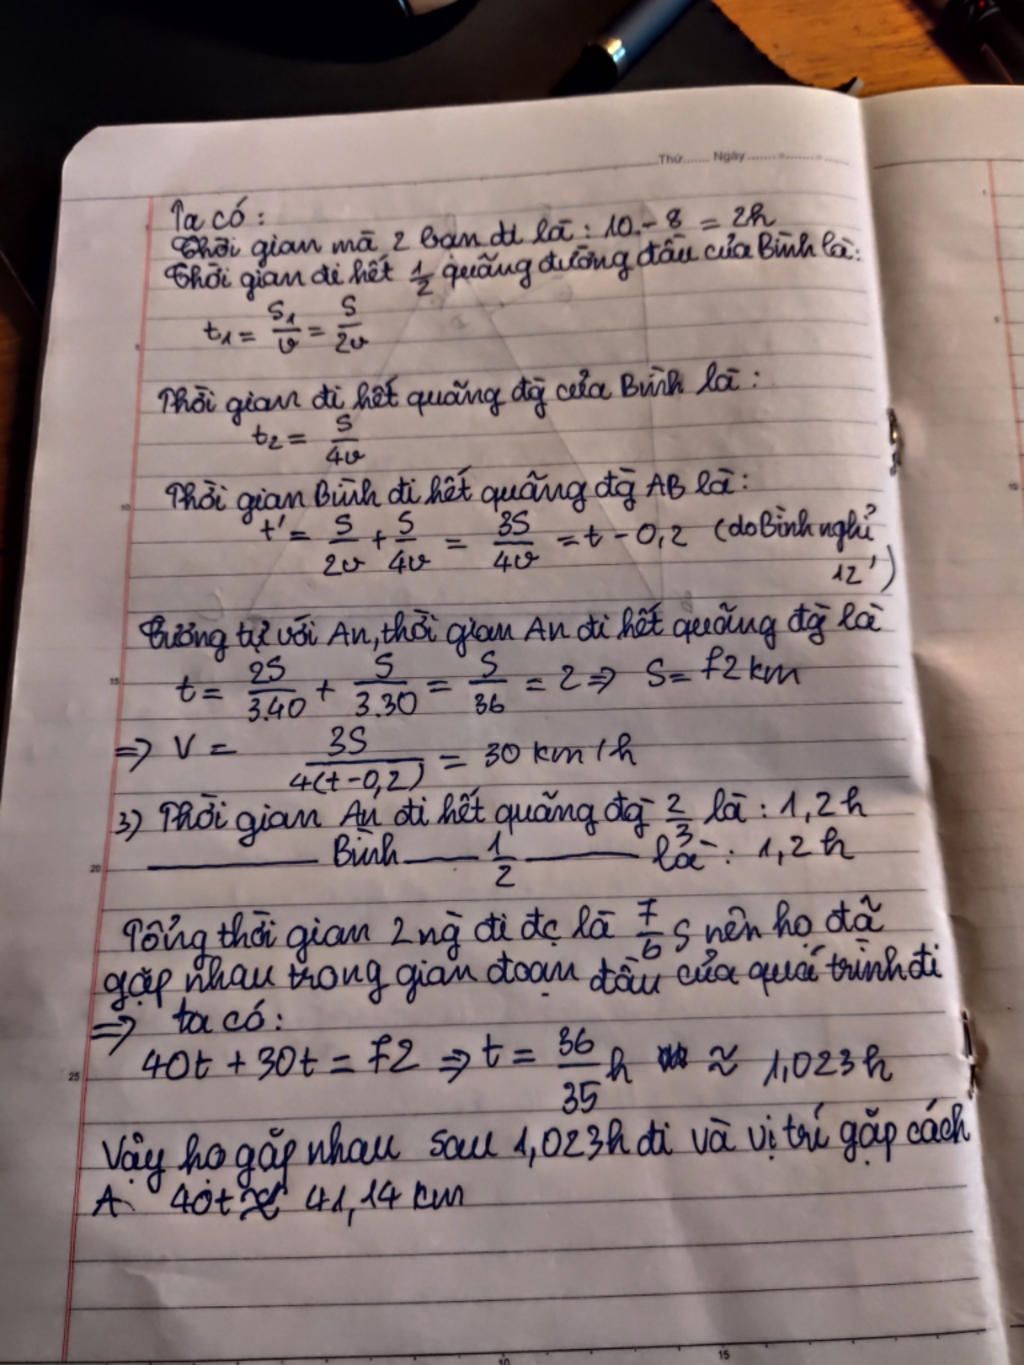 Thứ...... Ngày ......
Ta có:
Thời gian mà 2 bạn đi là: 10 - 8 = 2h
Thời gian đi hết 1/2 quãng đường đầu của Bình là:
t1 = S1/v = S/2v
Thời gian đi hết quãng đg̀ của Bình là:
t2 = S/4v
Thời gian Bình đi hết quãng đg̀ AB là:
t' = S/2v + S/4v = 3S/4v = t - 0,2 (do Bình nghỉ
12')
Tương tự với An, thời gian An đi hết quãng đg̀ là
t = 2S/3.40 + S/3.30 = S/36 = 2 => S = 72 km
=> V = 3S/4(t-0,2) = 30 km/h
3) Thời gian An đi hết quãng đg̀ 2/3 là: 1,2h
——— Bình —— 1/2 ——— là: 1,2h
Tổng thời gian 2 ng̀ đi đc là 7/6 S nên họ đã
gặp nhau trong gian đoạn đầu của quá trình đi
=> ta có:
40t + 30t = 72 => t = 36/35 h ≈ 1,023h
Vậy họ gặp nhau sau 1,023h đi và vị trí gặp cách
A 40t ≈ 41,14 km
5
10
15
20
25
10
15